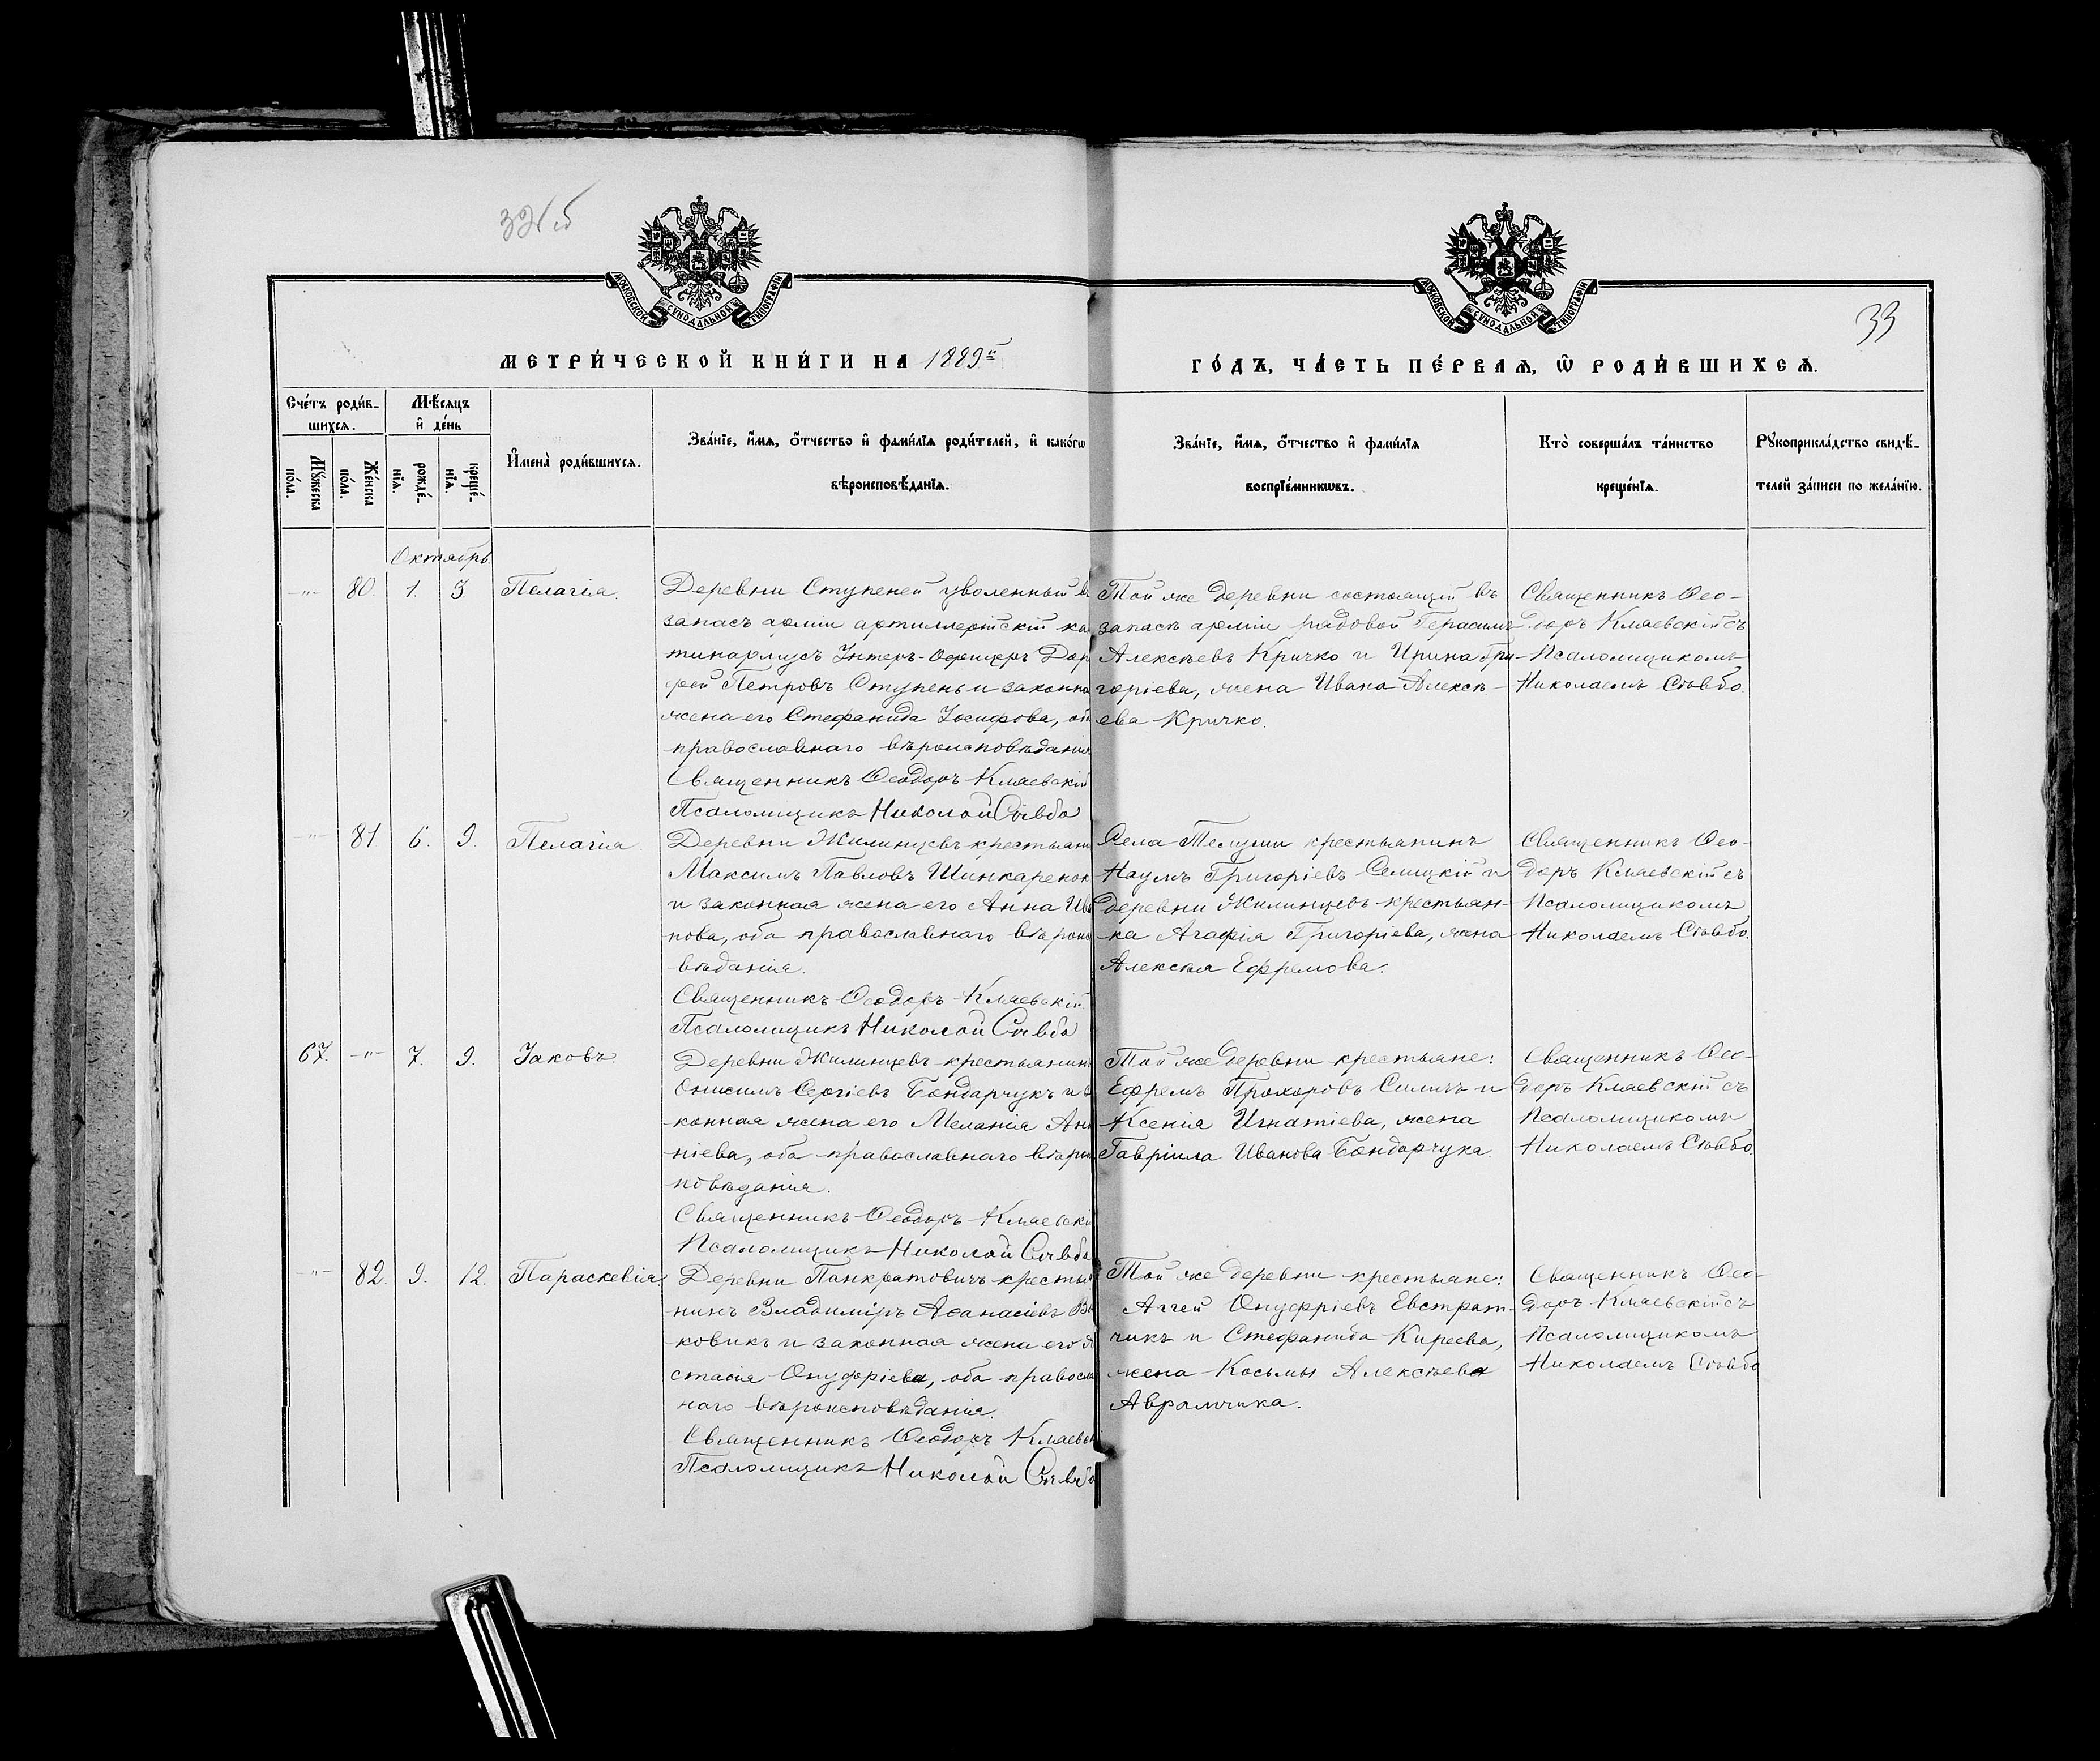 33
МОСКОВСКОЙ СѴНОДАЛЬНОЙ ТИПОГРАФІИ
МОСКОВСКОЙ СѴНОДАЛЬНОЙ ТИПОГРАФІИ
МЕТРИ́ЧЕСКОЙ КНИ́ГИ НА 1889й
ГО́ДЪ, ЧА́СТЬ ПЕ́РВАѦ, Ѽ РОДИ́ВШИХСѦ.
Сче́тъ роди́в-
шихсѧ.
Мѣ́сѧцъ
и҆ де́нь
Мꙋ́жеска
по́ла.
Же́нска
по́ла.
рожде́-
нїѧ.
креще́-
нїѧ.
И҆мена̀ роди́вшихсѧ.
Зва́нїе, и҆́мѧ, ѻ҆́тчество и҆ фами́лїѧ роди́телей, и҆ како́гѡ
вѣроисповѣ́данїѧ.
Зва́нїе, и҆́мѧ, ѻ҆́тчество и҆ фами́лїѧ
воспрїе́мникѡвъ.
Кто̀ соверша́лъ та́инство
креще́нїѧ.
Рꙋкоприкла́дство свидѣ́-
телей за́писи по жела́нїю.
Октябрь
-"- 80. 1. 3 Пелагіа.
Деревни Ступеней уволенный въ
запасъ арміи артиллерійскій ка
тинармусъ Унтеръ-Офицеръ Дор
фей Петровъ Ступень и законна
жена его Стефанида Іосифова, об
православнаго вѣроисповѣданія
Священникъ Ѳеодоръ Кляевскій
Псаломщикъ Николай Сѣвбо
Той же деревни состоящій въ
запасѣ арміи рядовой Герасимъ
Алексѣевъ Кричко и Ирина Гри-
горіева, жена Ивана Алексѣ-
ева Кричко.
Священникъ Ѳео-
доръ Кляевскій съ
Псаломщикомъ
Николаемъ Сѣвбо.
-"- 81 6. 9. Пелагіа.
Деревни Жилинцевъ крестьяни
Максимъ Павловъ Шинкаренок
и законная жена его Анна Ива
нова, оба православнаго вѣроис
вѣданія.
Священникъ Ѳеодоръ Кляевскій
Псаломщикъ Николай Сѣвбо
Села Телуши крестьянинъ
Наумъ Григоріевъ Селицкій и
деревни Жилинцевъ крестьян-
ка Агафія Григоріева, жена
Алексѣя Ефремова.
Священникъ Ѳео-
доръ Кляевскій съ
Псаломщикомъ
Николаемъ Сѣвбо.
67. -"- 7. 9. Іаковъ
Деревни Жилинцевъ крестьянинъ
Онисимъ Сергіевъ Бондарчукъ и з
конная жена его Меланія Ана
ніева, оба православнаго вѣрои
повѣданія.
Священникъ Ѳеодоръ Кляевскі
Псаломщикъ Николай Сѣвбо
Той же деревни крестьяне:
Ефремъ Прохоровъ Силичъ и
Ксенія Игнатіева, жена
Гавріила Иванова Бондарчука.
Священникъ Ѳео-
доръ Кляевскій съ
Псаломщикомъ
Николаемъ Сѣвбо.
-"- 82. 9. 12. Параскевія.
Деревни Панкратовичъ крестья
нинъ Владиміръ Аѳанасіевъ Во
ковикъ и законная жена его А
стасія Онуфріева, оба правосла
наго вѣроисповѣданія.
Священникъ Ѳеодоръ Кляевск
Псаломщикъ Николай Сѣвбо
Той же деревни крестьяне:
Аггей Онуфріевъ Евстрат-
чикъ и Стефанида Киреева,
жена Косьмы Алексѣева
Аврамчика.
Священникъ Ѳео-
доръ Кляевскій съ
Псаломщикомъ
Николаемъ Сѣвбо